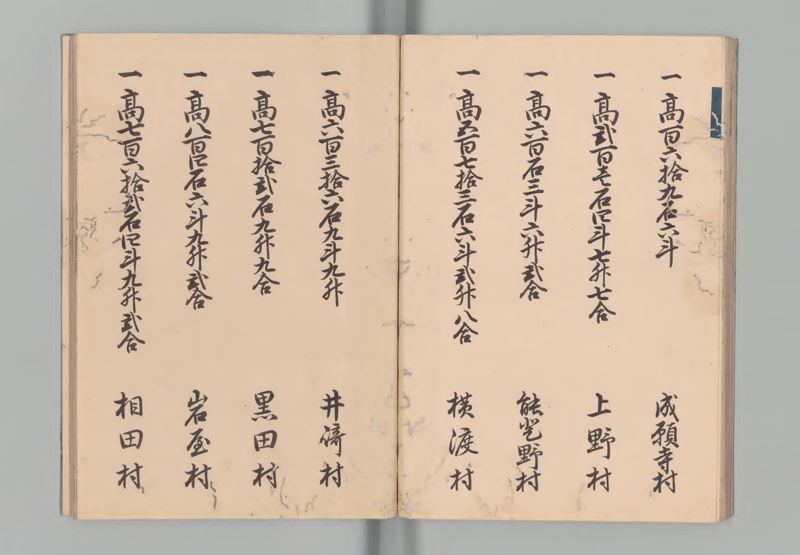 一 高百六拾九石六斗 成願寺村
一 高弐百壱石四斗七升七合 上野村
一 高六百石三斗六升弐合 能登野村
一 高五百七拾三石六斗弐升八合 横渡村
一 高六百三拾六石九斗九升 井崎村
一 高七百拾弐石九升九合 黒田村
一 高八百四石六斗九升弐合 岩屋村
一 高七百六拾弐石四斗九升弐合 相田村